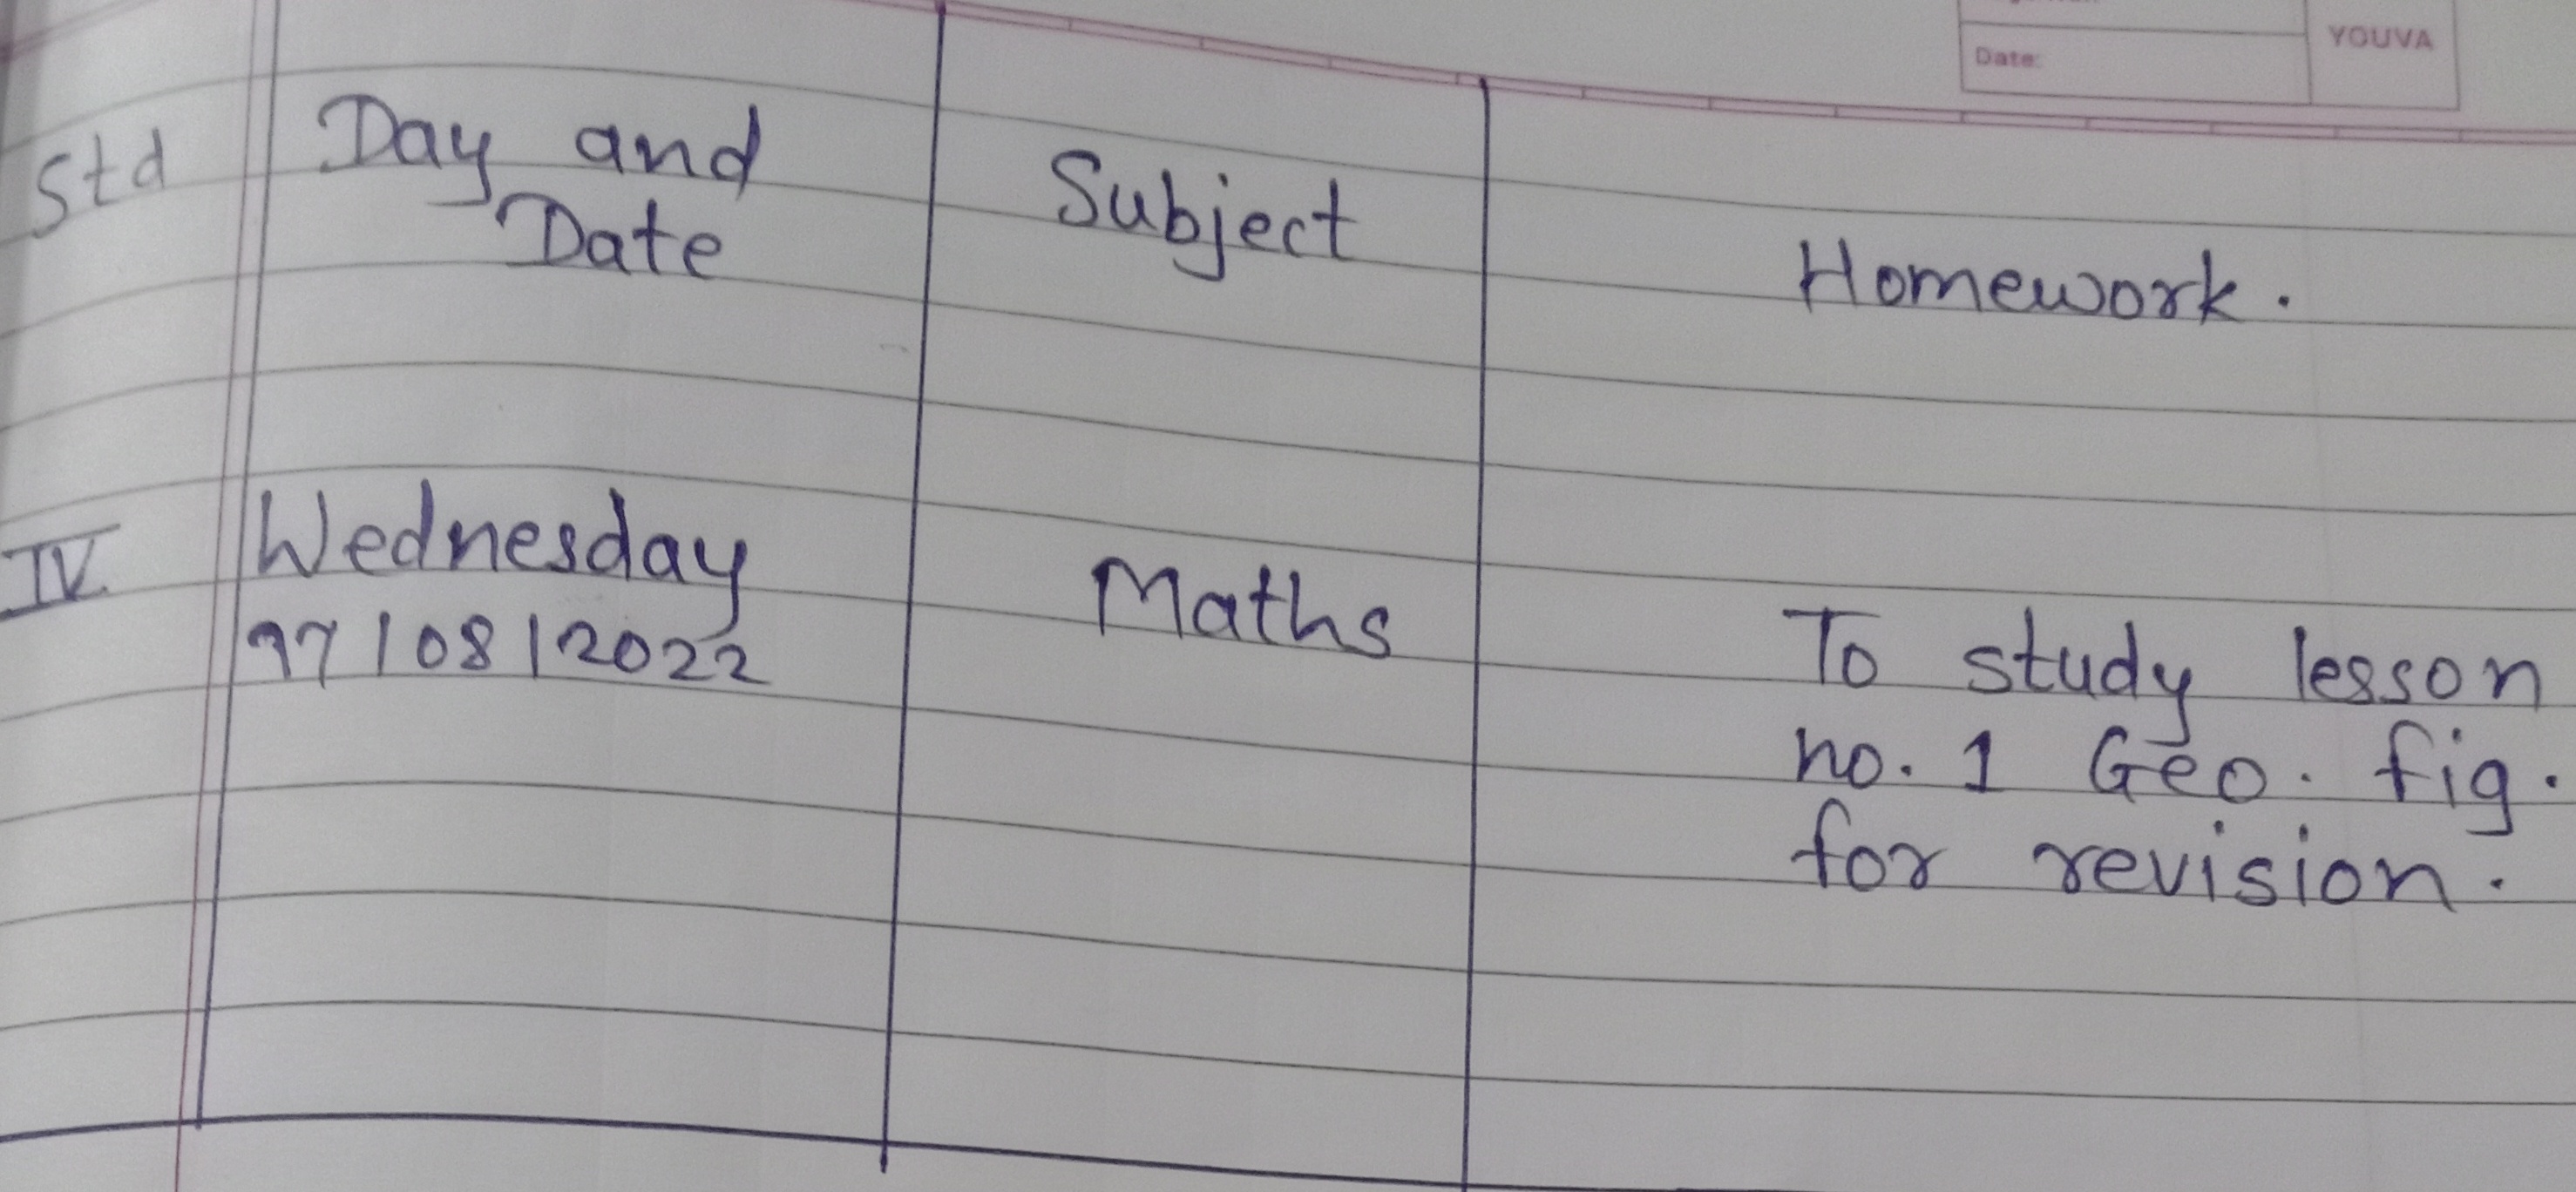 Date:
YOUVA
Std
Day and
Date
Subject
Homework.
IV
Wednesday
17/08/2022
Maths
To study lesson
no. 1 Geo. fig.
for revision.